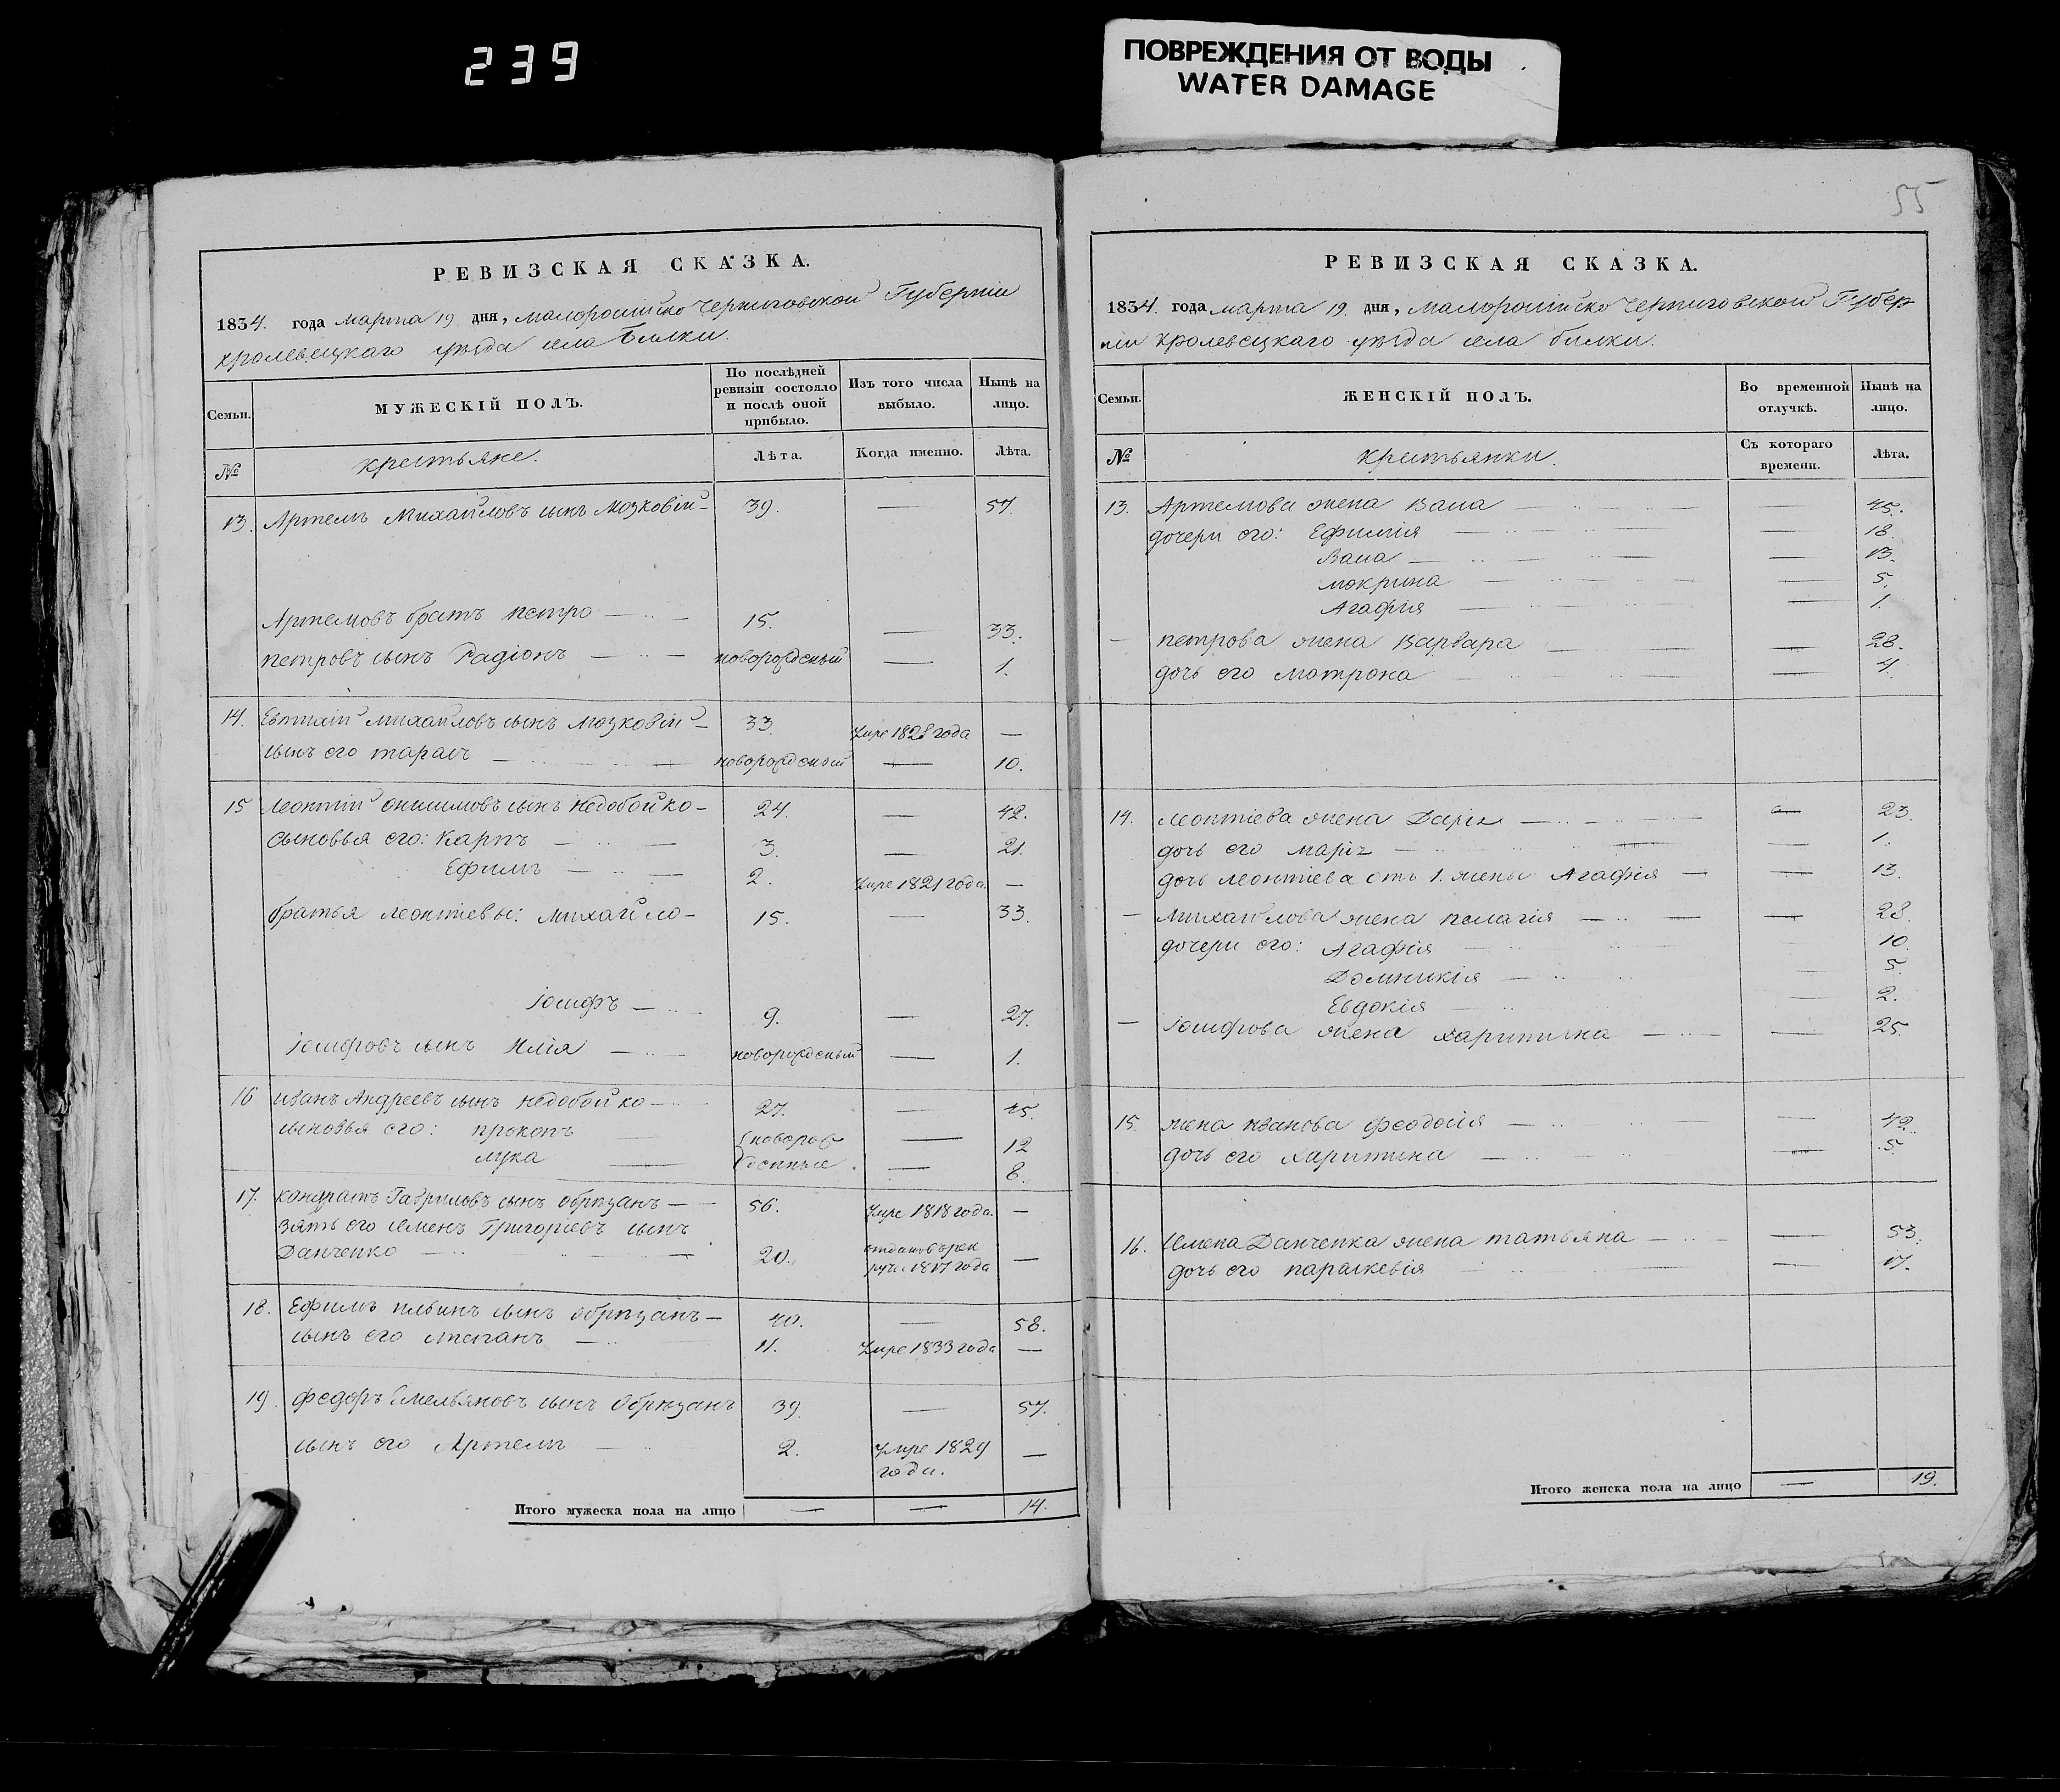 239
ПОВРЕЖДЕНИЯ ОТ ВОДЫ
WATER DAMAGE
РЕВИЗСКАЯ СКАЗКА.
1834. года марта 19 дня, малоросійско Черниговской Губерніи
кролевецкаго уѣзда села Билки.
Семьи. МУЖЕСКІЙ ПОЛЪ. По послѣдней ревизіи состояло и послѣ оной прибыло. Изъ того числа выбыло. Нынѣ на лицо.
№ крестьяне. Лѣта. Когда именно. Лѣта.
13. Артемъ Михайловъ сынъ Мозковій — 39. — 57.
Артемовъ братъ петро — 15. — 33.
петровъ сынъ Радіонъ — новорожденый — 1.
14. Евтихій михайловъ сынъ мозковій — 33. умре 1828 года —
сынъ его тарасъ — новорожденый — 10.
15 леонтій онисимовъ сынъ недобойко — 24. — 42.
сыновья его: Карпъ — 3. — 21.
Ефимъ — 2. умре 1821 года. —
братья леонтіевы: михайло — 15. — 33.
Іосифъ — 9. — 27.
Іосифовъ сынъ Илія — новорожденый — 1.
16 иванъ Андреевъ сынъ недобойко — 27. — 45.
сыновья его: прокопъ новорож — 12
лука — денные. — 8.
17. кондратъ Гавриловъ сынъ обрѣзанъ — 56. умре 1818 года. —
зять его семенъ Григоріевъ сынъ отданъ въ рек
Данченко — 20. руты 1817 года —
18. Ефимъ ильинъ сынъ обрѣзанъ — 40. — 58.
сынъ его степанъ — 11. умре 1833 года —
19. федоръ Емельяновъ сынъ Обрѣзанъ 39. — 57.
сынъ его Артемъ — 2. умре 1829 —
года.
Итого мужеска пола на лицо — — 14.
55
РЕВИЗСКАЯ СКАЗКА.
1834. года марта 19. дня, малоросійско Черниговской Губер
ніи кролевецкаго уѣзда села билки.
Семьи. ЖЕНСКІЙ ПОЛЪ. Во временной отлучкѣ. Нынѣ на лицо.
№ крестьянки. Съ котораго времени. Лѣта.
13. Артемова жена Васа — — 45.
дочери его: Ефимія — — 18.
Васа — — 13.
мокрина — — 5.
Агафія — — 1.
— петрова жена Варвара — — 28.
дочь его мотрона — — 4.
14. леонтіева жена Дарія — — 23.
дочь его марія — — 1.
дочь леонтіева отъ 1. жены Агафія — — 13.
— михайлова жена пелагія — — 28.
дочери его: Агафія — 10.
Домникія — — 5.
Евдокія — — 2.
— Іосифова жена харитина — — 25.
15. жена иванова феодосія — — 42.
дочь его харитина — — 5.
16. Семена Данченка жена татьяна — — 53.
дочь его параскевія — — 17.
Итого женска пола на лицо — 19.